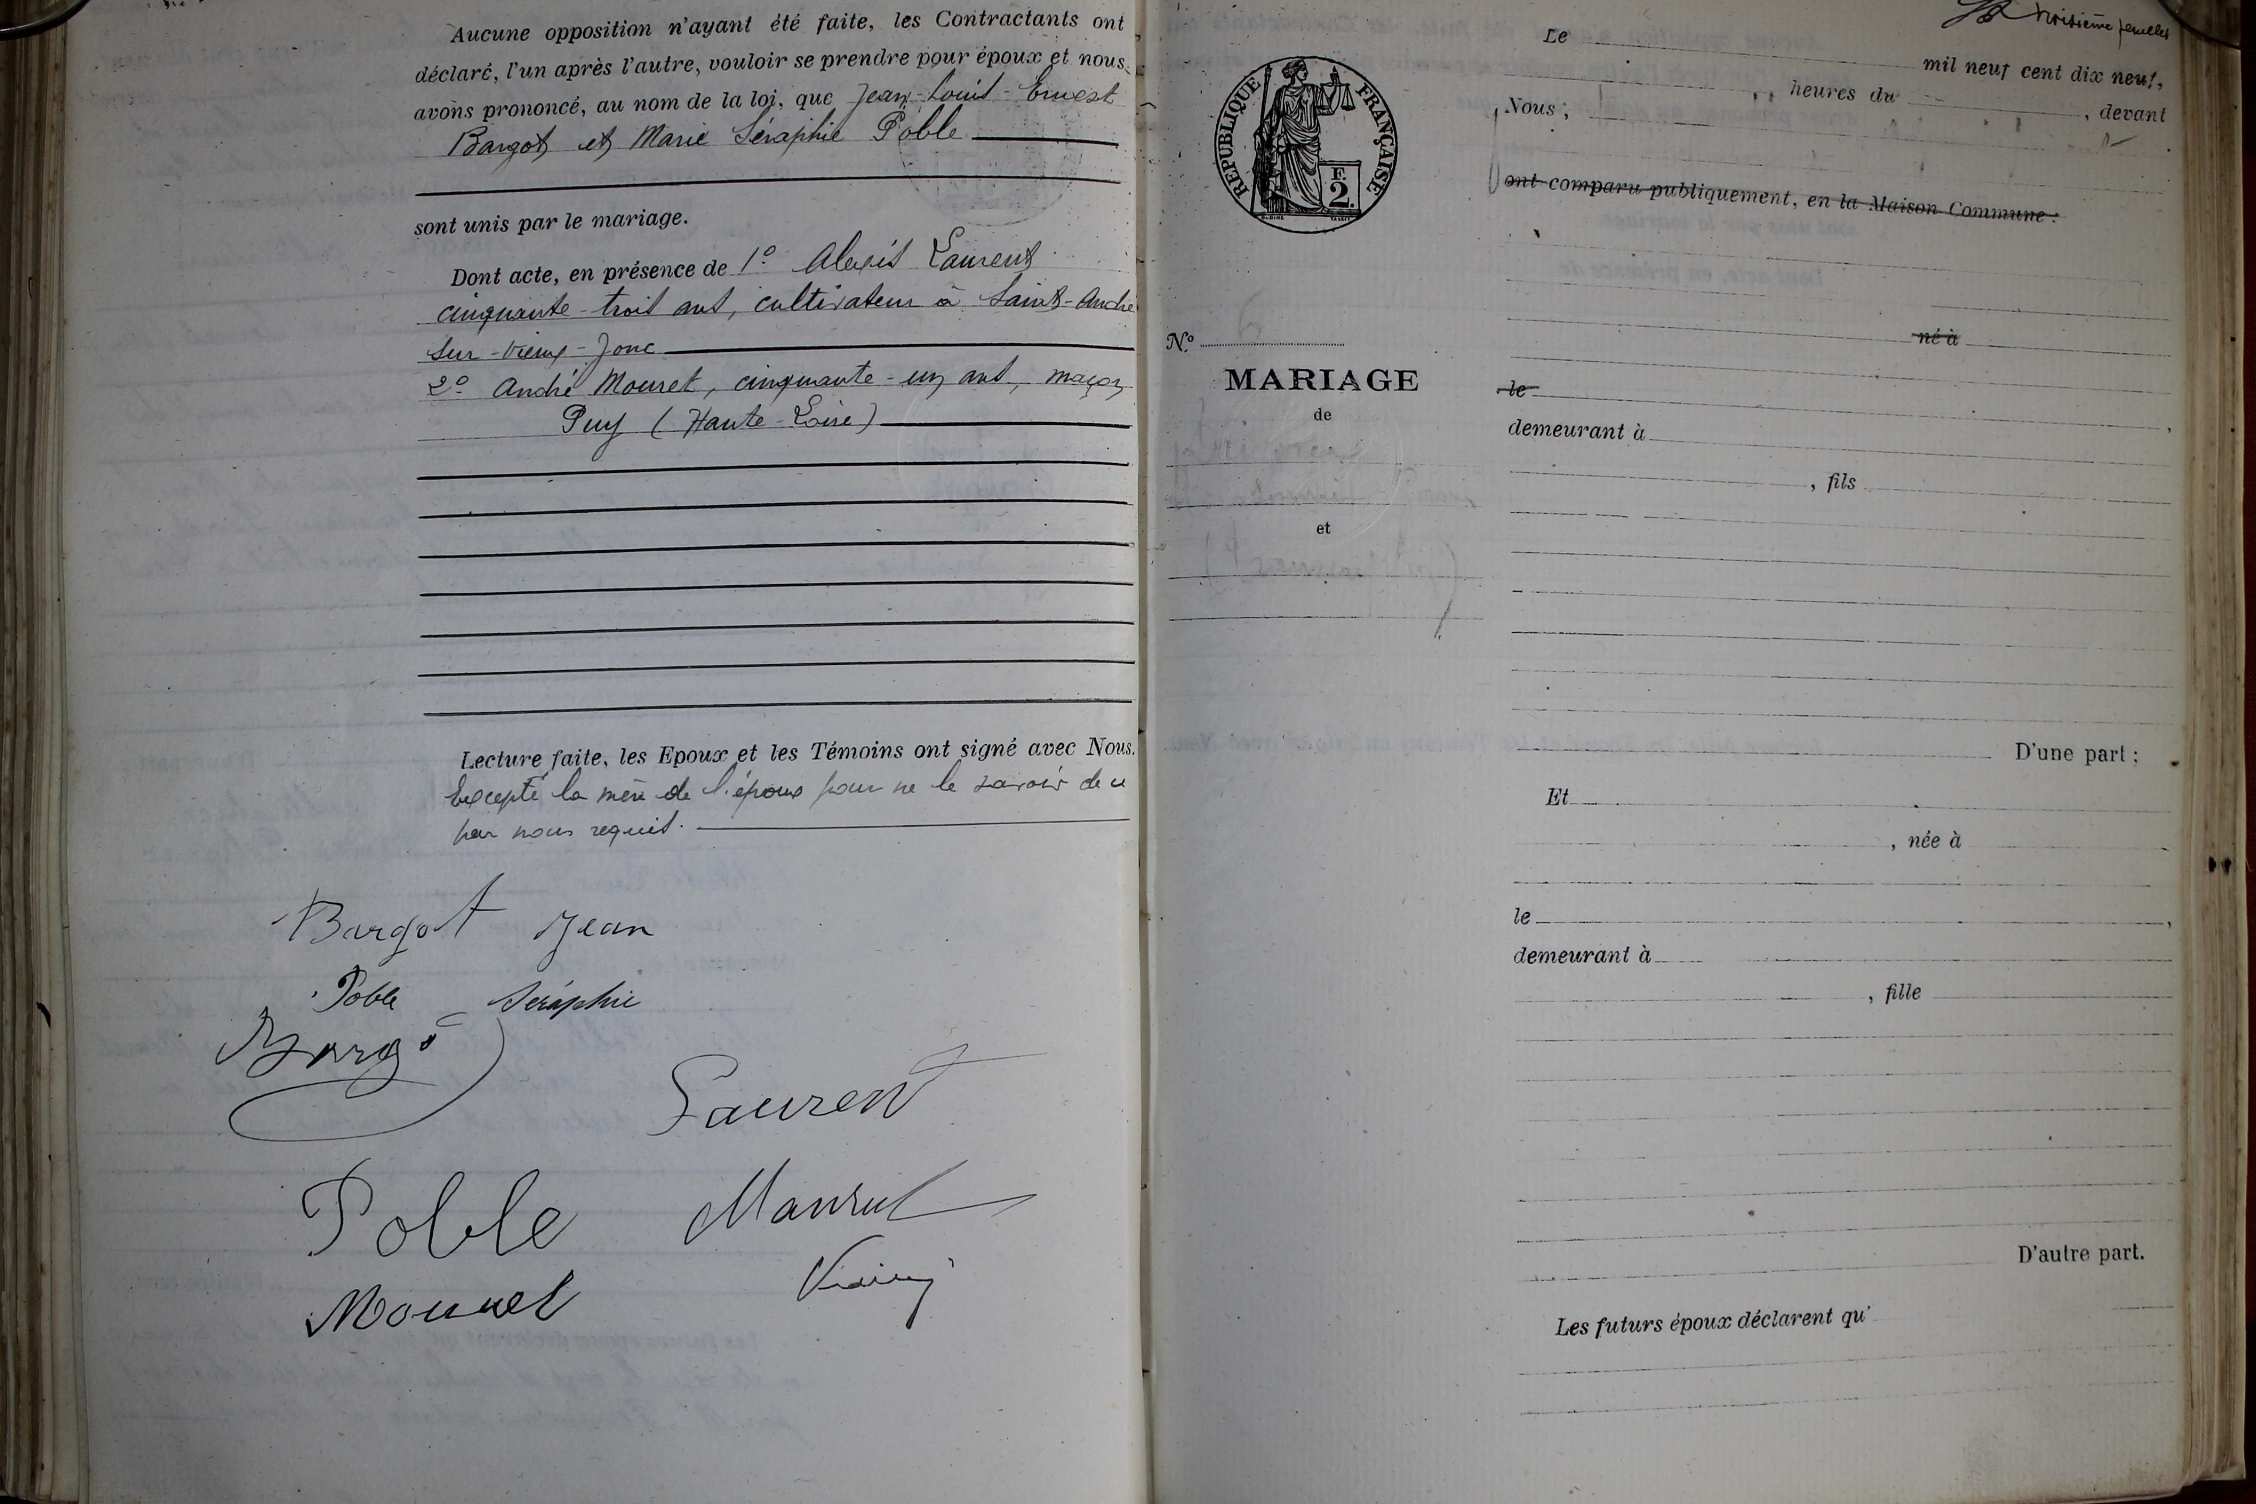 Aucune opposition n'ayant été faite, les Contractants ont
déclaré, l'un après l'autre, vouloir se prendre pour époux et nous
avons prononcé, au nom de la loi, que Jean-Louis-Ernest
Bargot et Marie Séraphie Poble
sont unis par le mariage.
Dont acte, en présence de 1º Alexis Laurent
cinquante-trois ans, cultivateur à Saint-André
sur-Vieux-Jonc
2º André Mouret, cinquante-un ans, maçon
Puy (Haute-Loire)
Lecture faite, les Epoux et les Témoins ont signé avec Nous.
Excepté la mère de l'époux pour ne le savoir de ce
par nous requis.
Bargot Jean
Poble Séraphie
Laurent
Poble
Mouret
troisième
Le
mil neuf cent dix neuf,
heures du , devant
Nous,
ont comparu publiquement, en la Maison Commune :
RÉPUBLIQUE FRANÇAISE
F.
2.
né à
Nº
MARIAGE
de
et
le ,
demeurant à
, fils
D'une part ;
Et
, née à
le ,
demeurant à
, fille
D'autre part.
Les futurs époux déclarent qu'